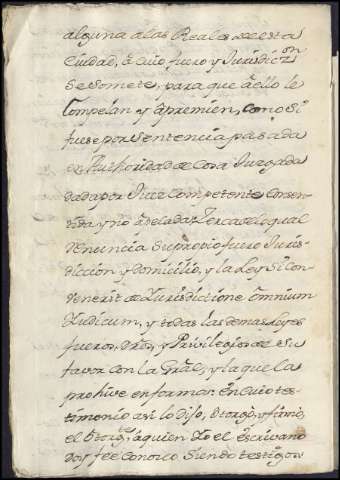 alguna a las Reales de esta
Ciudad, a cuio fuero y Jurisdic.on
se somete, para que a ello le
Compelan y apremien, como si
fuese por sentencia pasada
en Authoridad de Cosa Juzgada
dada por Juez Competente Consen-
tida y no apelada; Zerca de lo qual
renuncia su propio fuero Juris-
diccion y domicilio, y la Ley Si Con-
venerit de Jurisdictione Omnium
Judicum, y todas las demas Leyes
fueros, dros, y Privilegios de su
favor con la Gral, y la que la
prohive en forma: En cuio tes-
timonio asi lo dijo, otorgó, y firmó,
el otorg.te a quien Yo el escrivano
doy fee conozco siendo testigos